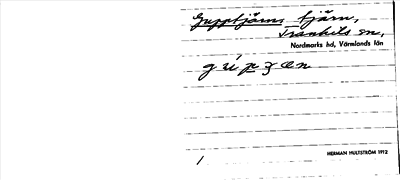 Gupptjärns tjärn,
Trankils sn,
Nordmarks hd, Värmlands län
gúpʒœn
HERMAN HULTSTRÖM 1912
1